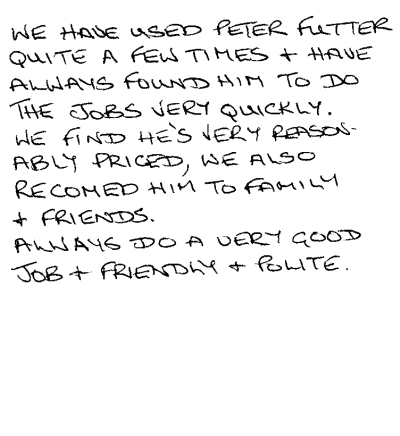 WE HAVE USED PETER FUTTER
QUITE A FEW TIMES + HAVE
ALWAYS FOUND HIM TO DO
THE JOBS VERY QUICKLY.
WE FIND HE'S VERY REASON-
ABLY PRICED, WE ALSO
RECOMED HIM TO FAMILY
+ FRIENDS.
ALWAYS DO A VERY GOOD
JOB + FRIENDLY + POLITE.